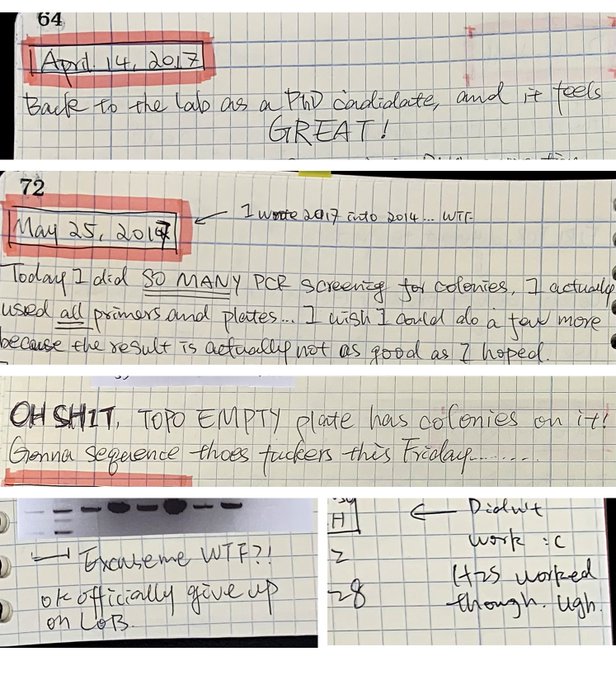 64
April 14, 2017
Back to the lab as a PhD cadidate, and it feels
GREAT!
72
May 25, 2017
I wrote 2017 into 2014... WTF
Today I did SO MANY PCR screening for colonies, I actually
used all primers and plates... I wish I could do a few more
because the result is actually not as good as I hoped.
OH SHIT, TOPO EMPTY plate has colonies on it!
Gonna sequence thoes fuckers this Friday........
Excuse me WTF?!
ok officially give up
on LoB.
H
2
28
Didn't
work :c
H25 worked
though. Ugh.